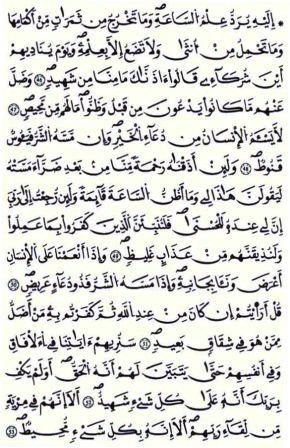 * إِلَيْهِ يُرَدُّ عِلْمُ السَّاعَةِ وَمَا تَخْرُجُ مِن ثَمَرَاتٍ مِّنْ أَكْمَامِهَا
وَمَا تَحْمِلُ مِنْ أُنثَىٰ وَلَا تَضَعُ إِلَّا بِعِلْمِهِ وَيَوْمَ يُنَادِيهِمْ
أَيْنَ شُرَكَآءِي قَالُوٓا۟ ءَاذَنَّـٰكَ مَا مِنَّا مِن شَهِيدٍ ۝ وَضَلَّ
عَنْهُم مَّا كَانُوا۟ يَدْعُونَ مِن قَبْلُ وَظَنُّوا۟ مَا لَهُم مِّن مَّحِيصٍ ۝
لَّا يَسْـَٔمُ الْإِنسَـٰنُ مِن دُعَآءِ الْخَيْرِ وَإِن مَّسَّهُ الشَّرُّ فَيَـُٔوسٌ
قَنُوطٌ ۝ وَلَئِنْ أَذَقْنَـٰهُ رَحْمَةً مِّنَّا مِن بَعْدِ ضَرَّآءَ مَسَّتْهُ
لَيَقُولَنَّ هَـٰذَا لِي وَمَآ أَظُنُّ السَّاعَةَ قَآئِمَةً وَلَئِن رُّجِعْتُ إِلَىٰ رَبِّيَ
إِنَّ لِي عِندَهُۥ لَلْحُسْنَىٰ فَلَنُنَبِّئَنَّ الَّذِينَ كَفَرُوا۟ بِمَا عَمِلُوا۟
وَلَنُذِيقَنَّهُم مِّنْ عَذَابٍ غَلِيظٍ ۝ وَإِذَآ أَنْعَمْنَا عَلَى الْإِنسَـٰنِ
أَعْرَضَ وَنَـَٔا بِجَانِبِهِۦ وَإِذَا مَسَّهُ الشَّرُّ فَذُو دُعَآءٍ عَرِيضٍ ۝
قُلْ أَرَءَيْتُمْ إِن كَانَ مِنْ عِندِ اللَّهِ ثُمَّ كَفَرْتُم بِهِۦ مَنْ أَضَلُّ
مِمَّنْ هُوَ فِي شِقَاقٍ بَعِيدٍ ۝ سَنُرِيهِمْ ءَايَـٰتِنَا فِي الْـَٔافَاقِ
وَفِيٓ أَنفُسِهِمْ حَتَّىٰ يَتَبَيَّنَ لَهُمْ أَنَّهُ الْحَقُّ أَوَلَمْ يَكْفِ
بِرَبِّكَ أَنَّهُۥ عَلَىٰ كُلِّ شَيْءٍ شَهِيدٌ ۝ أَلَآ إِنَّهُمْ فِي مِرْيَةٍ
مِّن لِّقَآءِ رَبِّهِمْ أَلَآ إِنَّهُۥ بِكُلِّ شَيْءٍ مُّحِيطٌ ۝